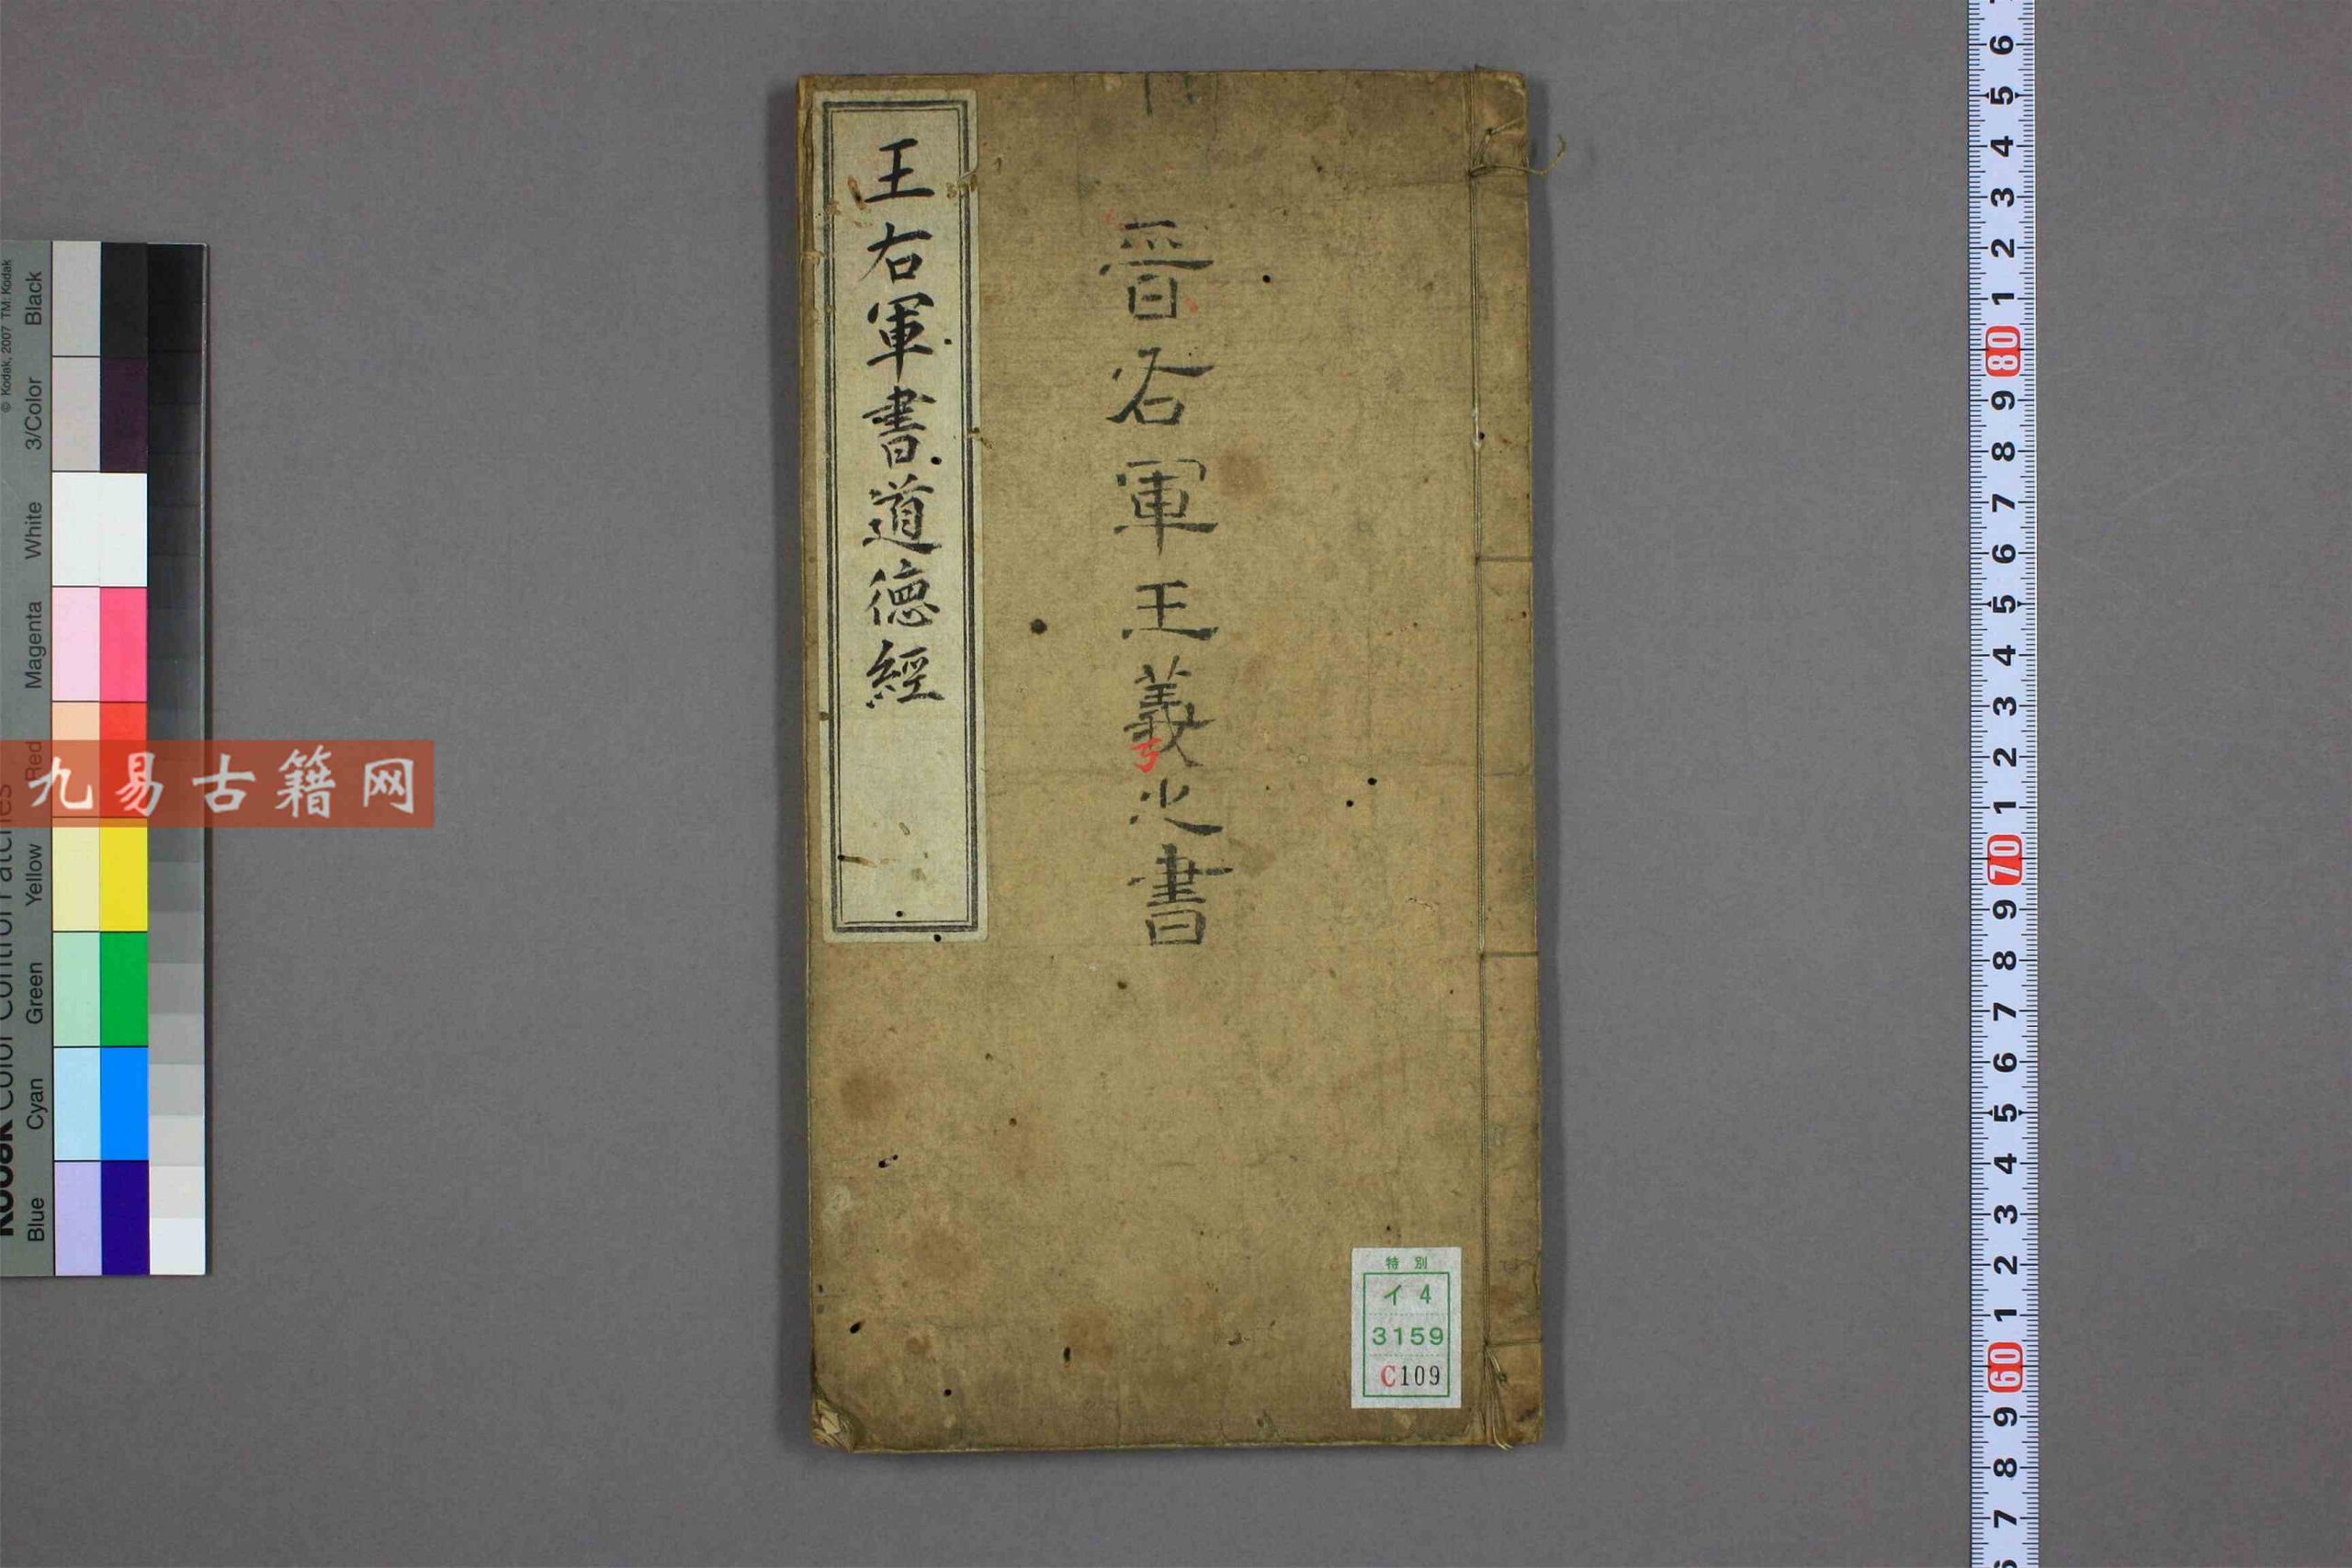 王右軍書道德經
晉右軍王羲之書
特別
イ 4
3159
C109
九易古籍网
© Kodak, 2007 TM: Kodak
Kodak Color Control Patches
Blue Cyan Green Yellow Red Magenta White 3/Color Black
6
5
4
3
2
1
80
9
8
7
6
5
4
3
2
1
70
9
8
7
6
5
4
3
2
1
60
9
8
7